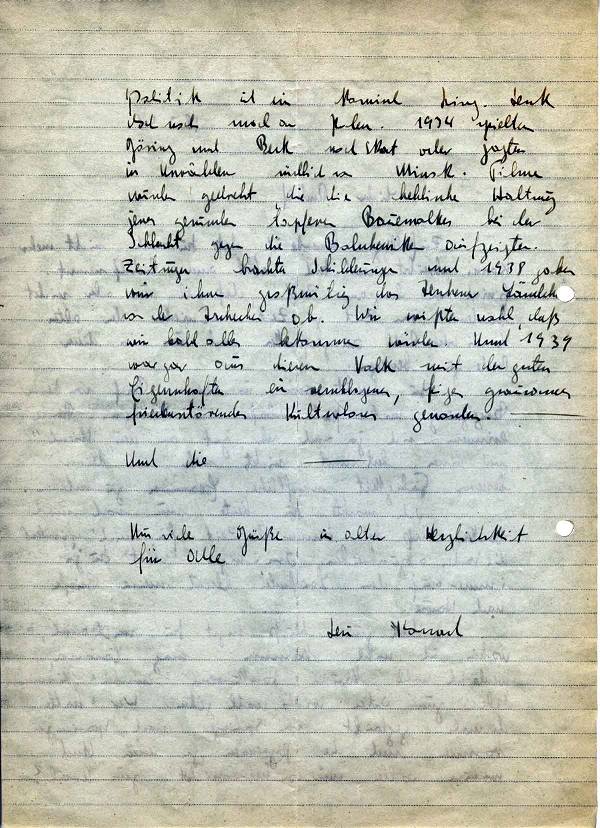 Politik ist ein Ding. Denk
doch noch mal an Polen. 1934 spielten
Göring und Beck noch Skat oder jagten
in Urwäldern südlich von Minsk. Filme
wurden gedreht, die die heldische Haltung
jenes gesunden tapferen Bauernvolkes bei der
Schlacht gegen die Bolschewiken aufzeigten.
Zeitungen brachten Schilderungen und 1938 gaben
wir ihnen großmütig das Ländchen
von der Tschechei ab. Wir wußten wohl, daß
wir bald alles bekommen würden. Und 1939
war gar aus diesem Volk mit den guten
Eigenschaften ein verschlagenes, feiges, grausames
friedenstörendes Kulturloses geworden.
Und die
Nun viele Grüße in alter Herzlichkeit
für Alle
Dein Konrad